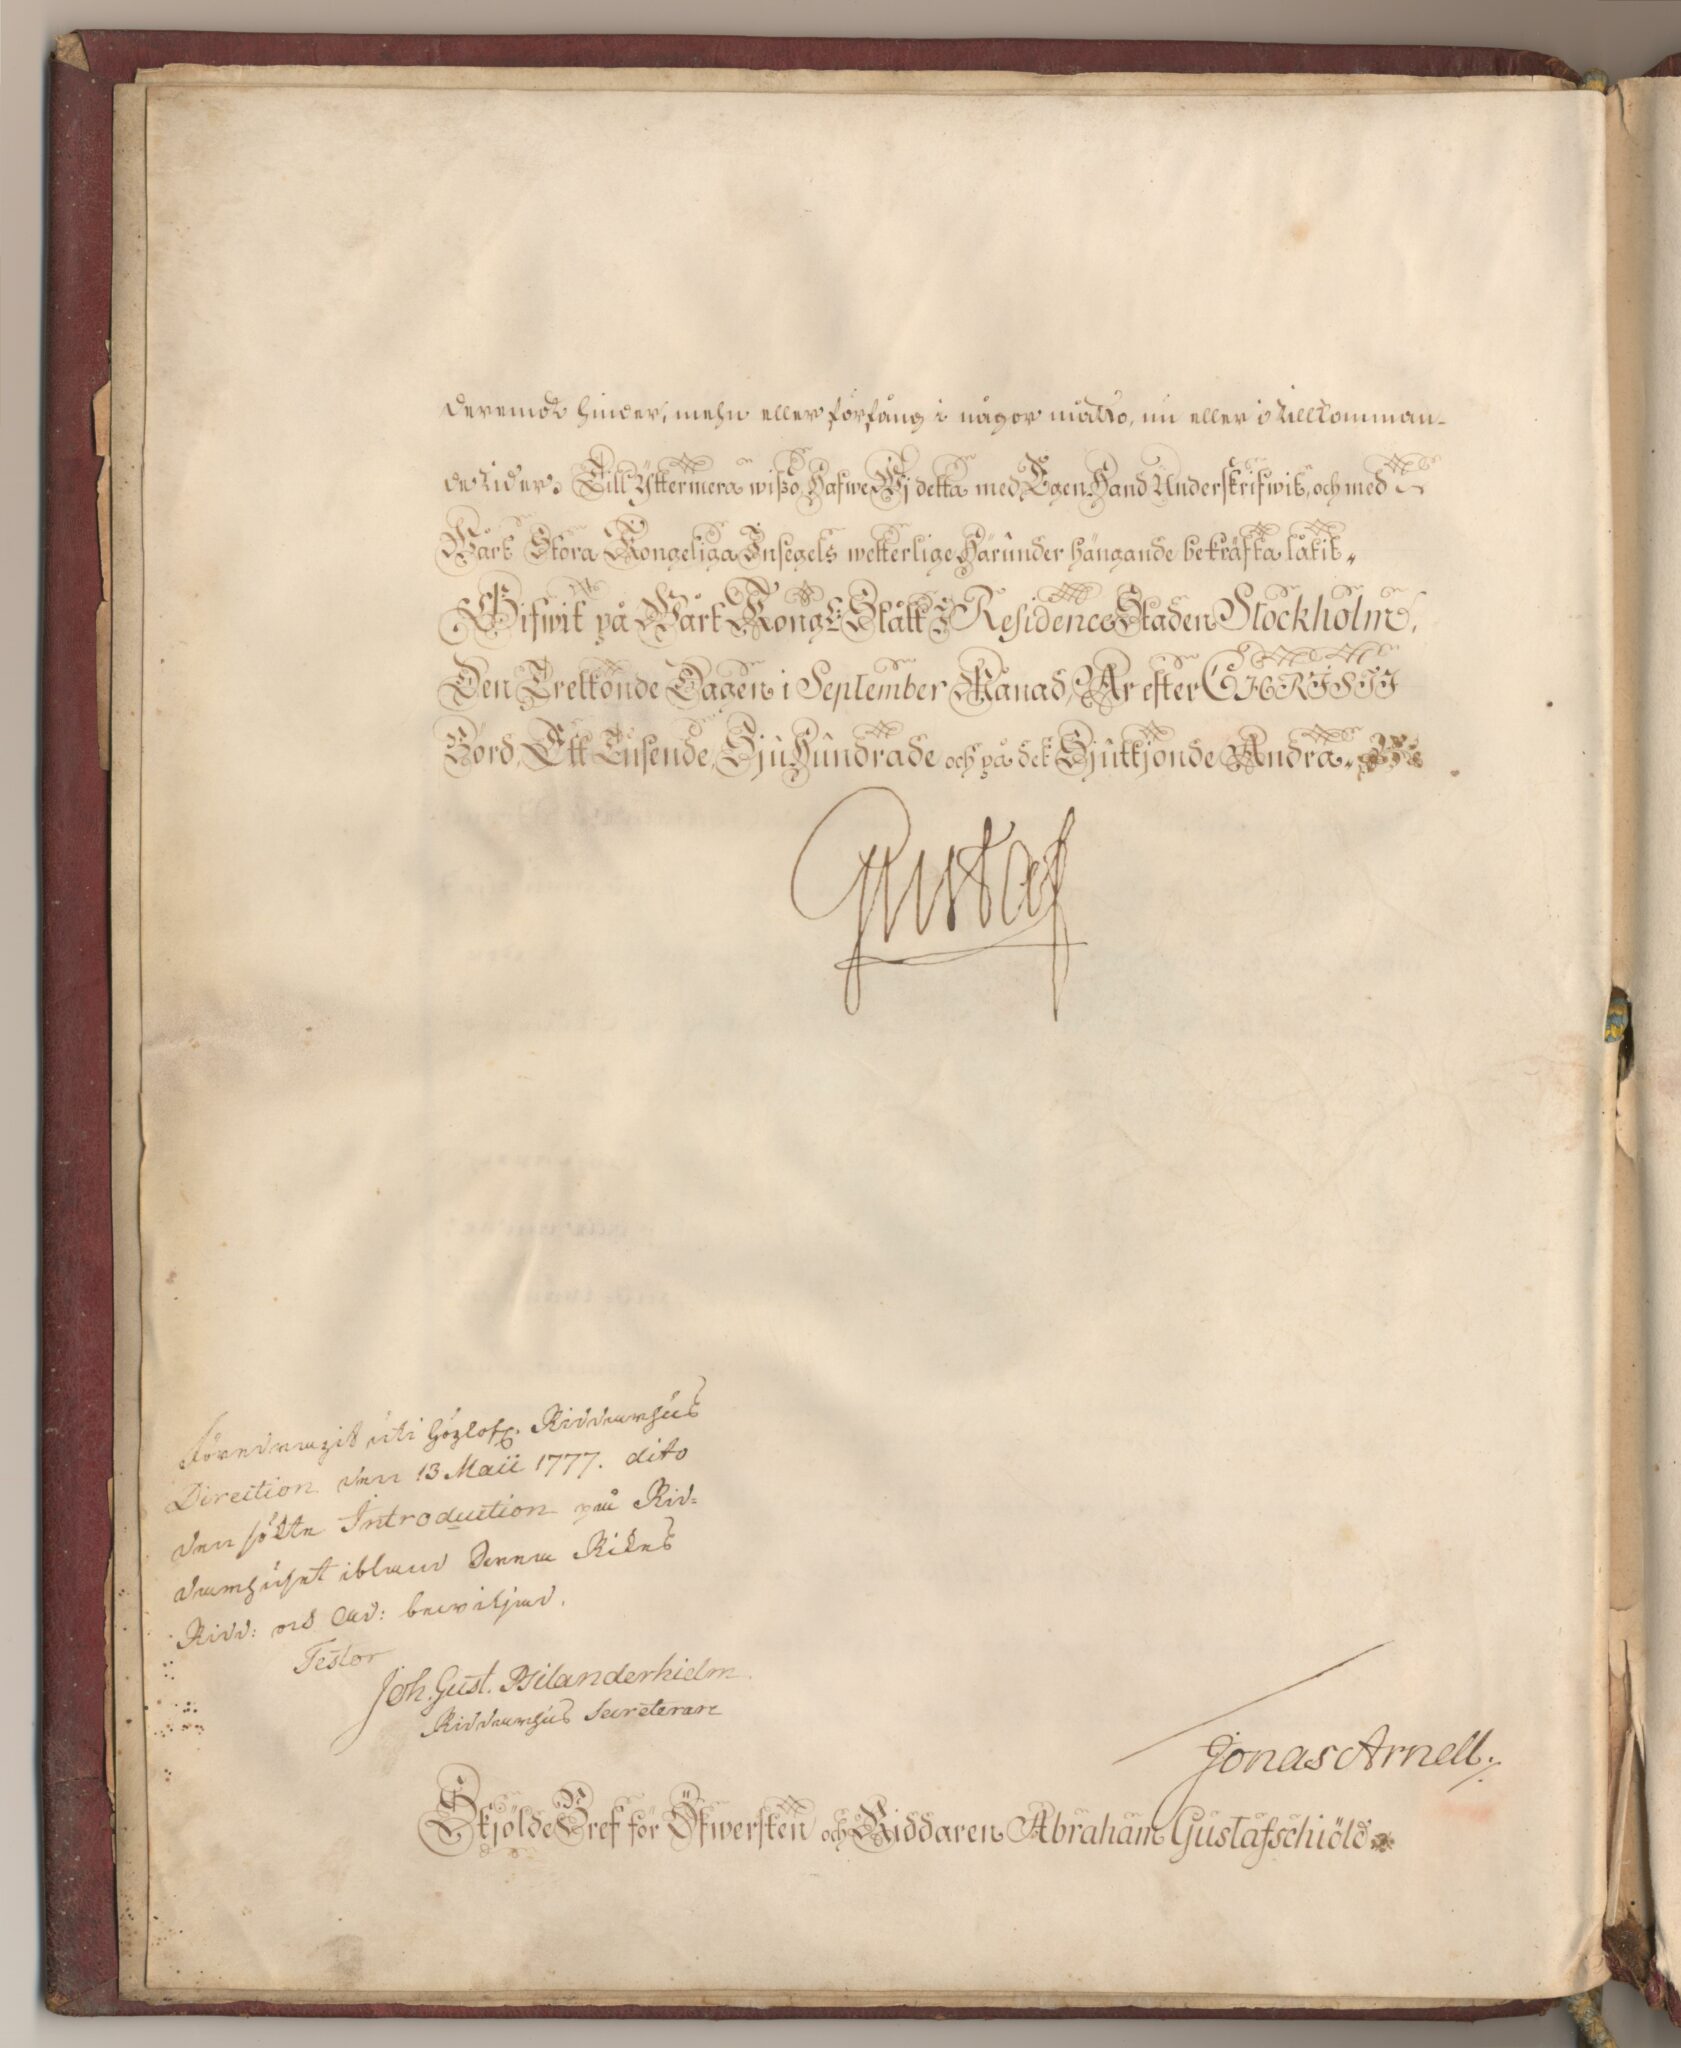 deremot hinder, mehn eller förfång i någor måtto, nu eller i tillkomman-
de tider. Till yttermera wisso, Hafwe Wj detta med Egen Hand Underskrifwit, och med
Wårt Stora Kongeliga Insegels wetterlige Härunder hängande bekräfta låtit„
Gifwit på Wårt Kongl: Slått i Residence Staden Stockholm,
Den Trettonde Dagen i September Månad, År efter CHRISTI
Börd, Ett Tusende, Sju Hundrade och på det Sjuttjonde Andra„
Gustaf
Föredragit uti Höglofl. Riddarhus
Direction den 13 Maii 1777. dito
den sökta Introduction på Rid-
darhuset ibland Denna Rikes
Ridd: och Ad: bewiljad.
Testor
Joh. Gust. Psilanderhielm
Riddarhus Secreterare
Jonas Arnell.
Skjölde Bref för Öfwersten och Riddaren Abraham Gustafschiöld